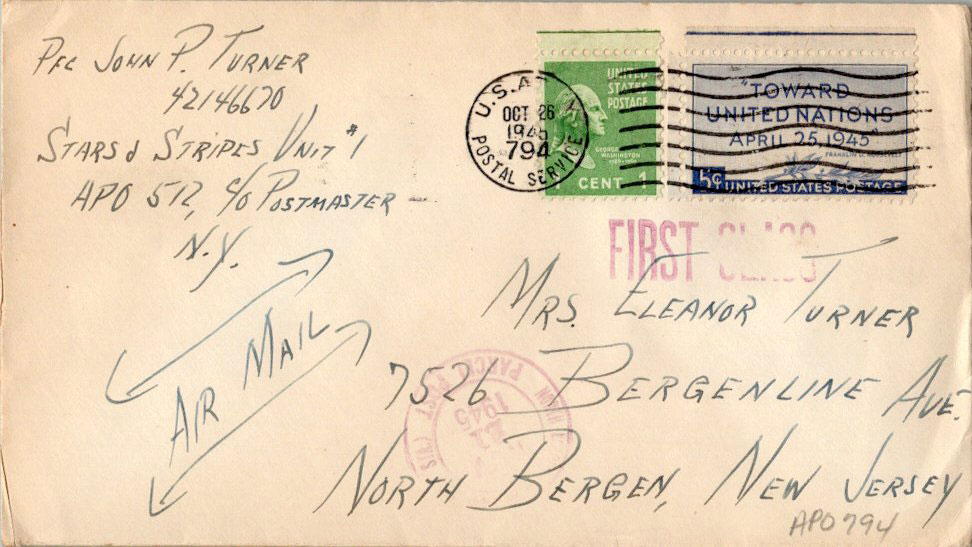 Pfc John P. Turner
42146670
Stars & Stripes Unit #1
APO 512, c/o Postmaster
N.Y.
Air Mail
U.S.A.
OCT 26
1945
794
POSTAL SERVICE
UNITED
STATES
POSTAGE
GEORGE
WASHINGTON
CENT 1
"TOWARD
UNITED NATIONS
APRIL 25, 1945"
FRANKLIN D. ROOSEVELT
5¢ UNITED STATES POSTAGE
FIRST CLASS
Mrs. Eleanor Turner
7526 Bergenline Ave.
North Bergen, New Jersey
PARCEL POST
1945
APO 794